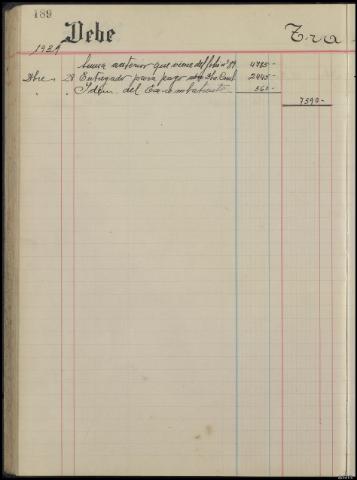 189
Debe
Tra
1924
Suma anterior que viene del folio nº 89 4785-
Dbre 28 Entregado para pago 2445-
" " Idem del Ex-combatiente 360-
7590-